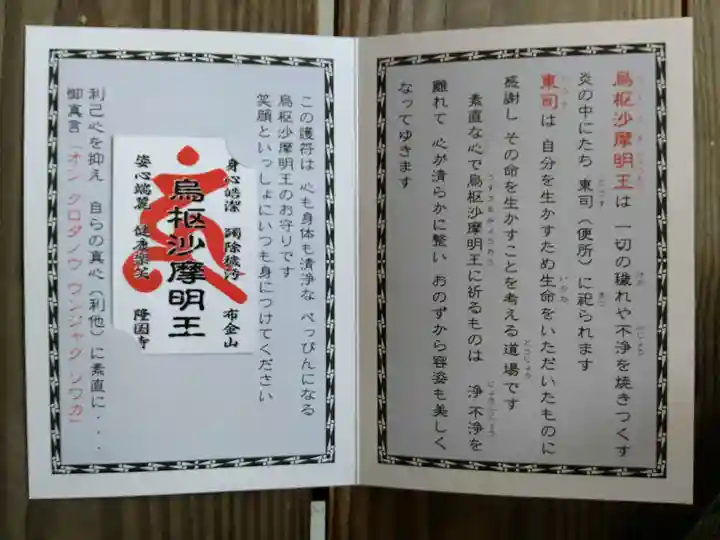 烏枢沙摩明王は 一切の穢れや不浄を焼きつくす
炎の中にたち 東司（便所）に祀られます
東司は 自分を生かすため生命をいただいたものに
感謝し その命を生かすことを考える道場です
素直な心で烏枢沙摩明王に祈るものは 浄 不浄を
離れて 心が清らかに整い おのずから容姿も美しく
なってゆきます
この護符は 心も身体も清浄な べっぴんになる
烏枢沙摩明王のお守りです
笑顔といっしょにいつも身につけてください
身心皓潔 蠲除穢汚 布金山
烏枢沙摩明王
姿心端麗 健康楽笑 隆国寺
利己心を抑え 自らの真心（利他）に素直に・・・
御真言「オン クロダノウ ウンジャク ソワカ」